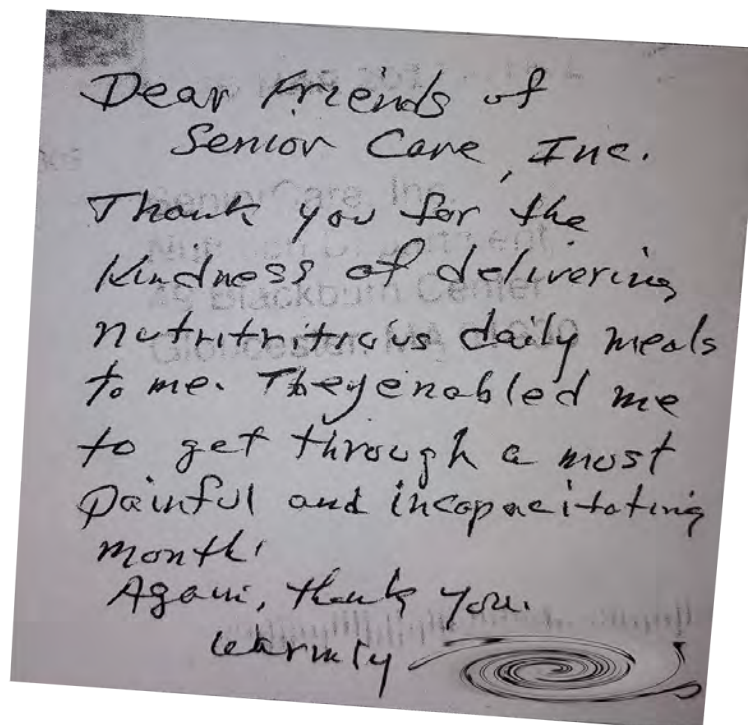 Dear Friends of
Senior Care, Inc.
Thank you for the
Kindness of delivering
nutritritrious daily meals
to me. They enabled me
to get through a most
painful and incapacitating
month!
Again, thank you.
Warmly
SeniorCare, Inc.
Blackburn Center
Gloucester, MA